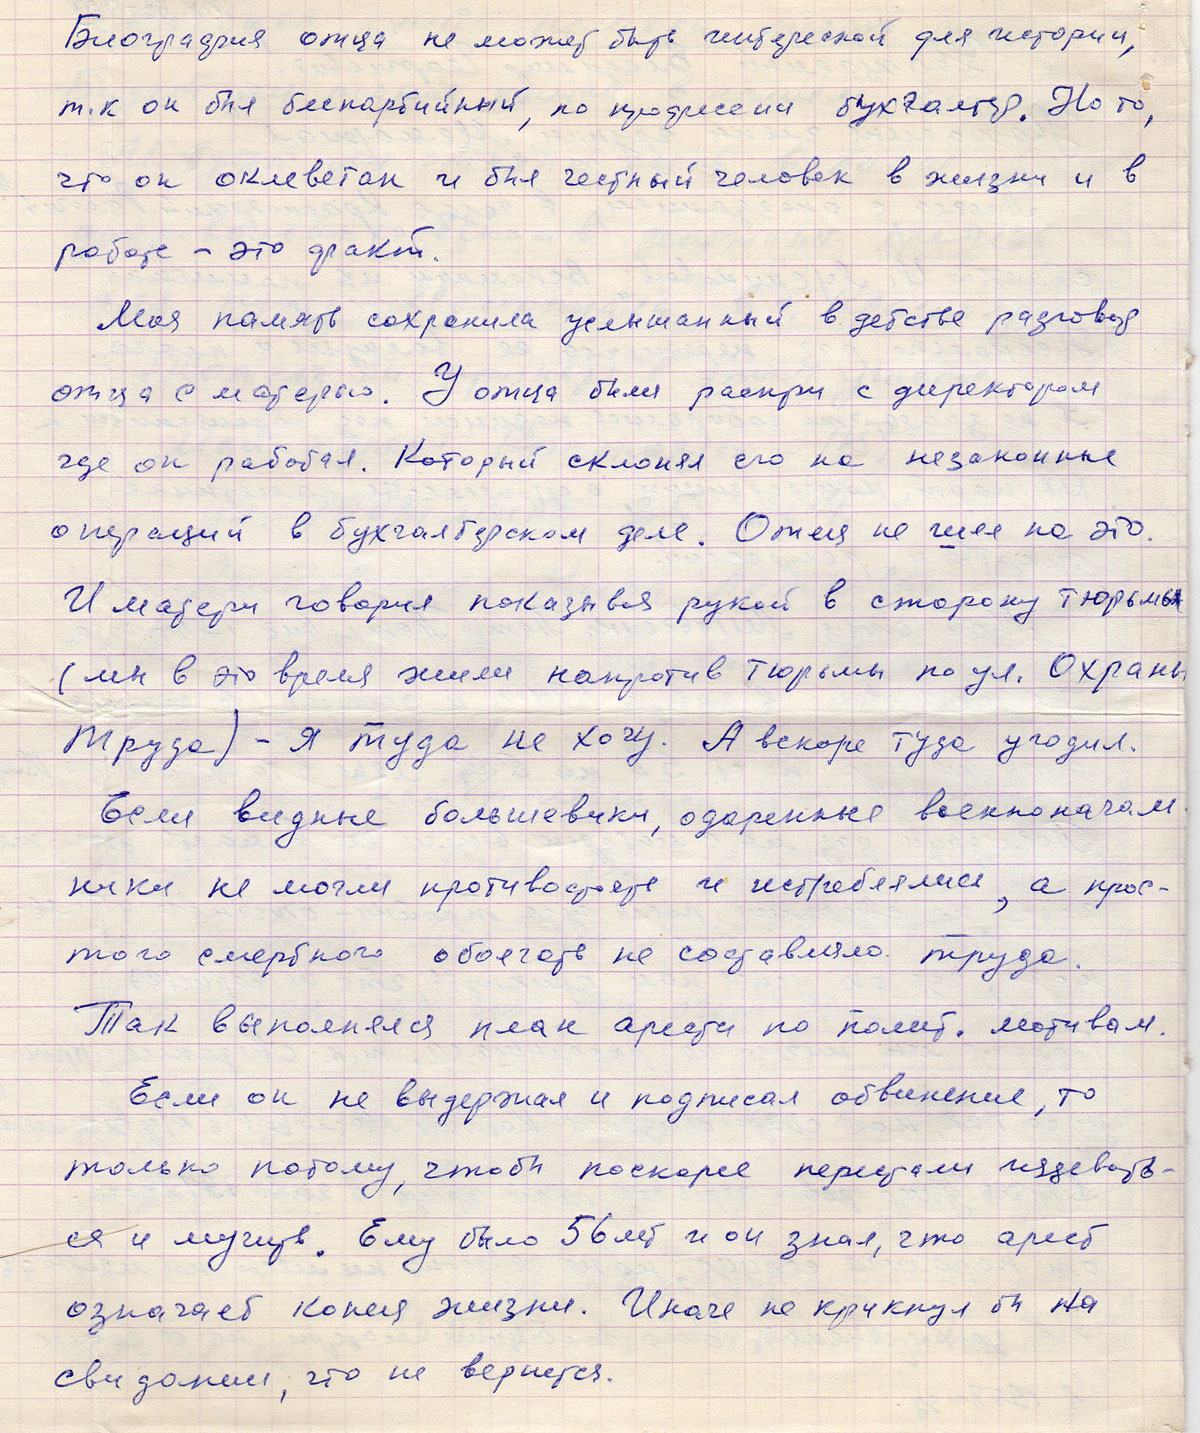 Биография отца не может быть интересной для истории,
т.к он был беспартийный, по профессии бухгалтер. Но то,
что он оклеветан и был честный человек в жизни и в
работе – это факт.
Моя память сохранила услышанный в детстве разговор
отца с матерью. У отца были распри с директором
где он работал. Который склонял его на незаконные
операций в бухгалтерском деле. Отец не шел на это.
И матери говорил показывая рукой в сторону тюрьмы
(мы в это время жили напротив тюрьмы по ул. Охраны
Труда) – я туда не хочу. А вскоре туда угодил.
Если видные большевики, одаренные военноначаль
ники не могли противостоять и истреблялись, а прос-
того смертного оболгать не составляло труда.
Так выполнялся план арести по полит. мотивам.
Если он не выдержал и подписал обвинение, то
только потому, чтобы поскорее перестали издевать-
ся и мучить. Ему было 56 лет и он знал, что арест
означает конец жизни. Иначе не крикнул бы на
свидании, что не вернется.